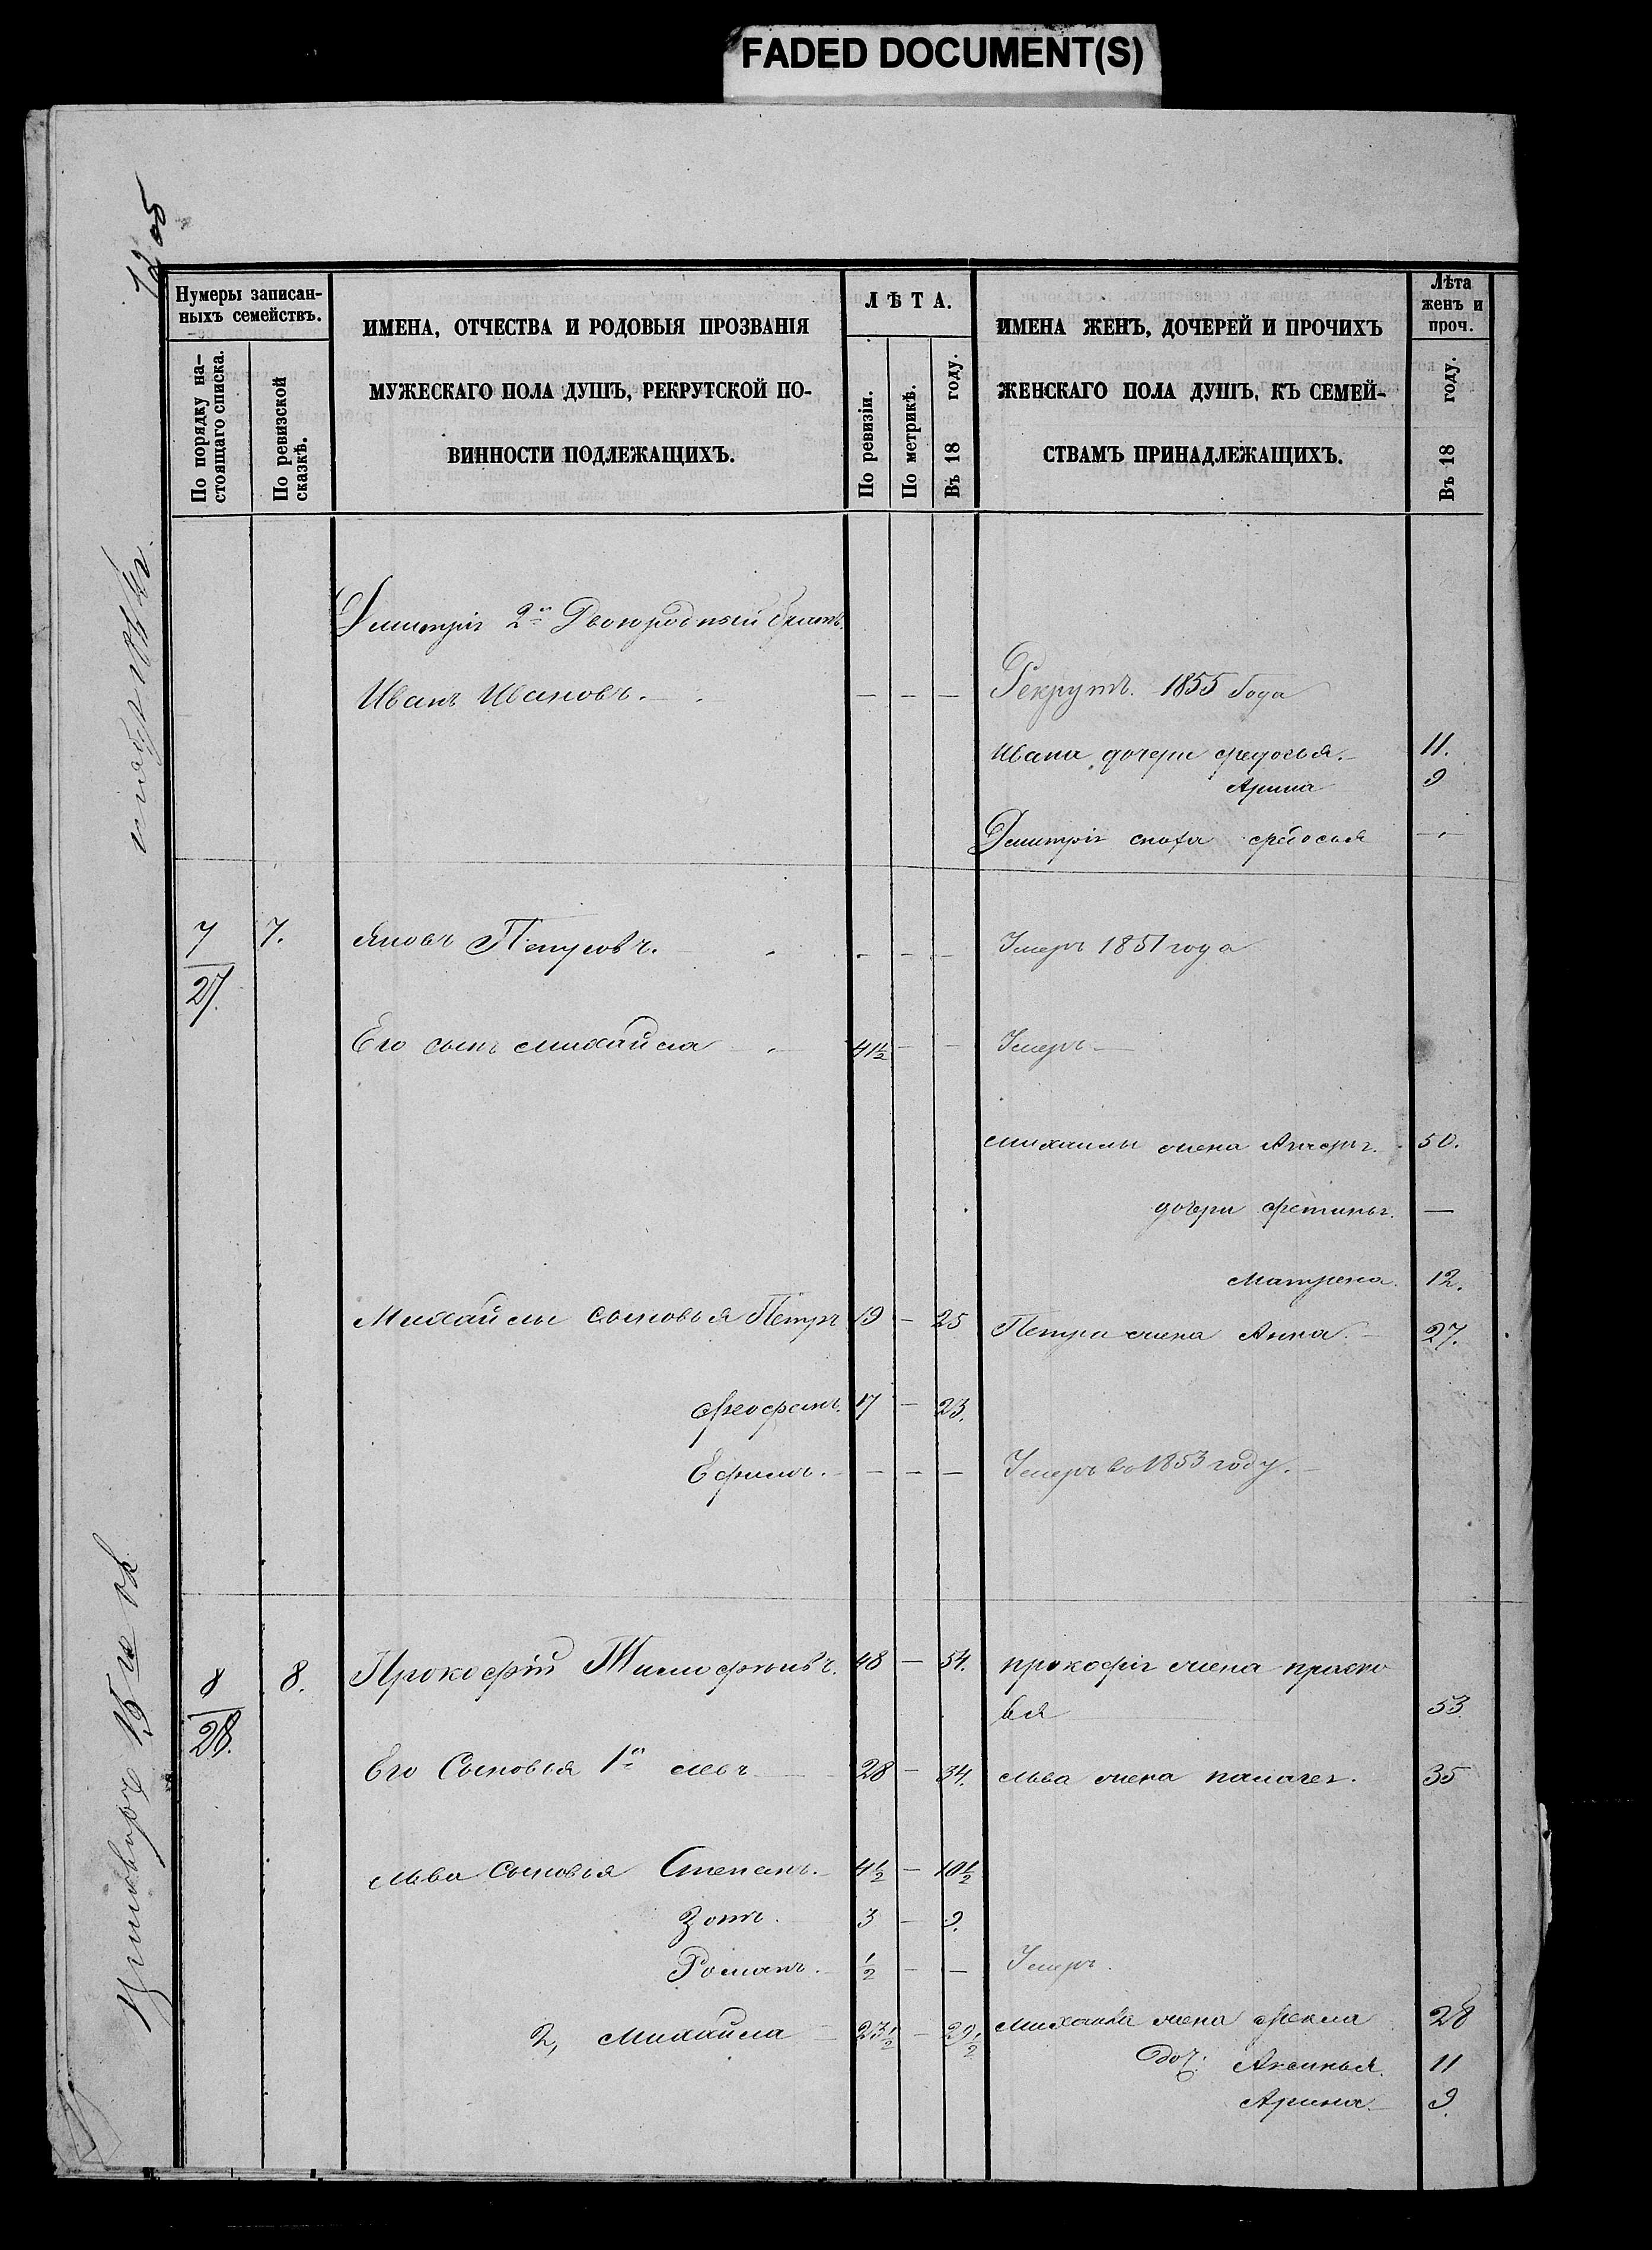 FADED DOCUMENT(S)
1205
Нумеры записан-
ныхъ семействъ.
По порядку на-
стоящаго списка.
По ревизской
сказкѣ.
ИМЕНА, ОТЧЕСТВА И РОДОВЫЯ ПРОЗВАНІЯ
МУЖЕСКАГО ПОЛА ДУШЪ, РЕКРУТСКОЙ ПО-
ВИННОСТИ ПОДЛЕЖАЩИХЪ.
ЛѢТА.
По ревизіи.
По метрикѣ.
Въ 18 году.
ИМЕНА ЖЕНЪ, ДОЧЕРЕЙ И ПРОЧИХЪ
ЖЕНСКАГО ПОЛА ДУШЪ, КЪ СЕМЕЙ-
СТВАМЪ ПРИНАДЛЕЖАЩИХЪ.
Лѣта
женъ и
проч.
Въ 18 году.
Дмитрія 2й Двоюродный братъ
Иванъ Ивановъ. — — — Рекрутъ 1855 года
Ивана дочери Федосья. 11.
Арина 9
Дмитрія сноха Федосья —
7/27. 7. Яковъ Петровъ. — — — Умеръ 1851 года
Его сынъ Михайла 41½ — — Умеръ —
Михаилы жена 50.
дочери Фетинья. —
Матрена. 12.
Михайлы сыновья Петръ 19 — 25 Петра жена Анна. 27.
Феофанъ. 17 — 23.
Ефимъ. — — — Умеръ во 1853 году.
8/28. 8. Прокофій Тимофѣевъ. 48 — 54. Прокофія жена праско
вья 53
Его Сыновья 1й Левъ 28 — 34. Льва жена палагея. 35
Льва Сыновья Степанъ. 4½ — 10½
Зотъ. 3 — 9.
Романъ. ½ — — Умеръ.
2, Михайла 23½ — 29½ Михаила жена Фекла 28
Доч: Аксинья. 11
Арина. 9.